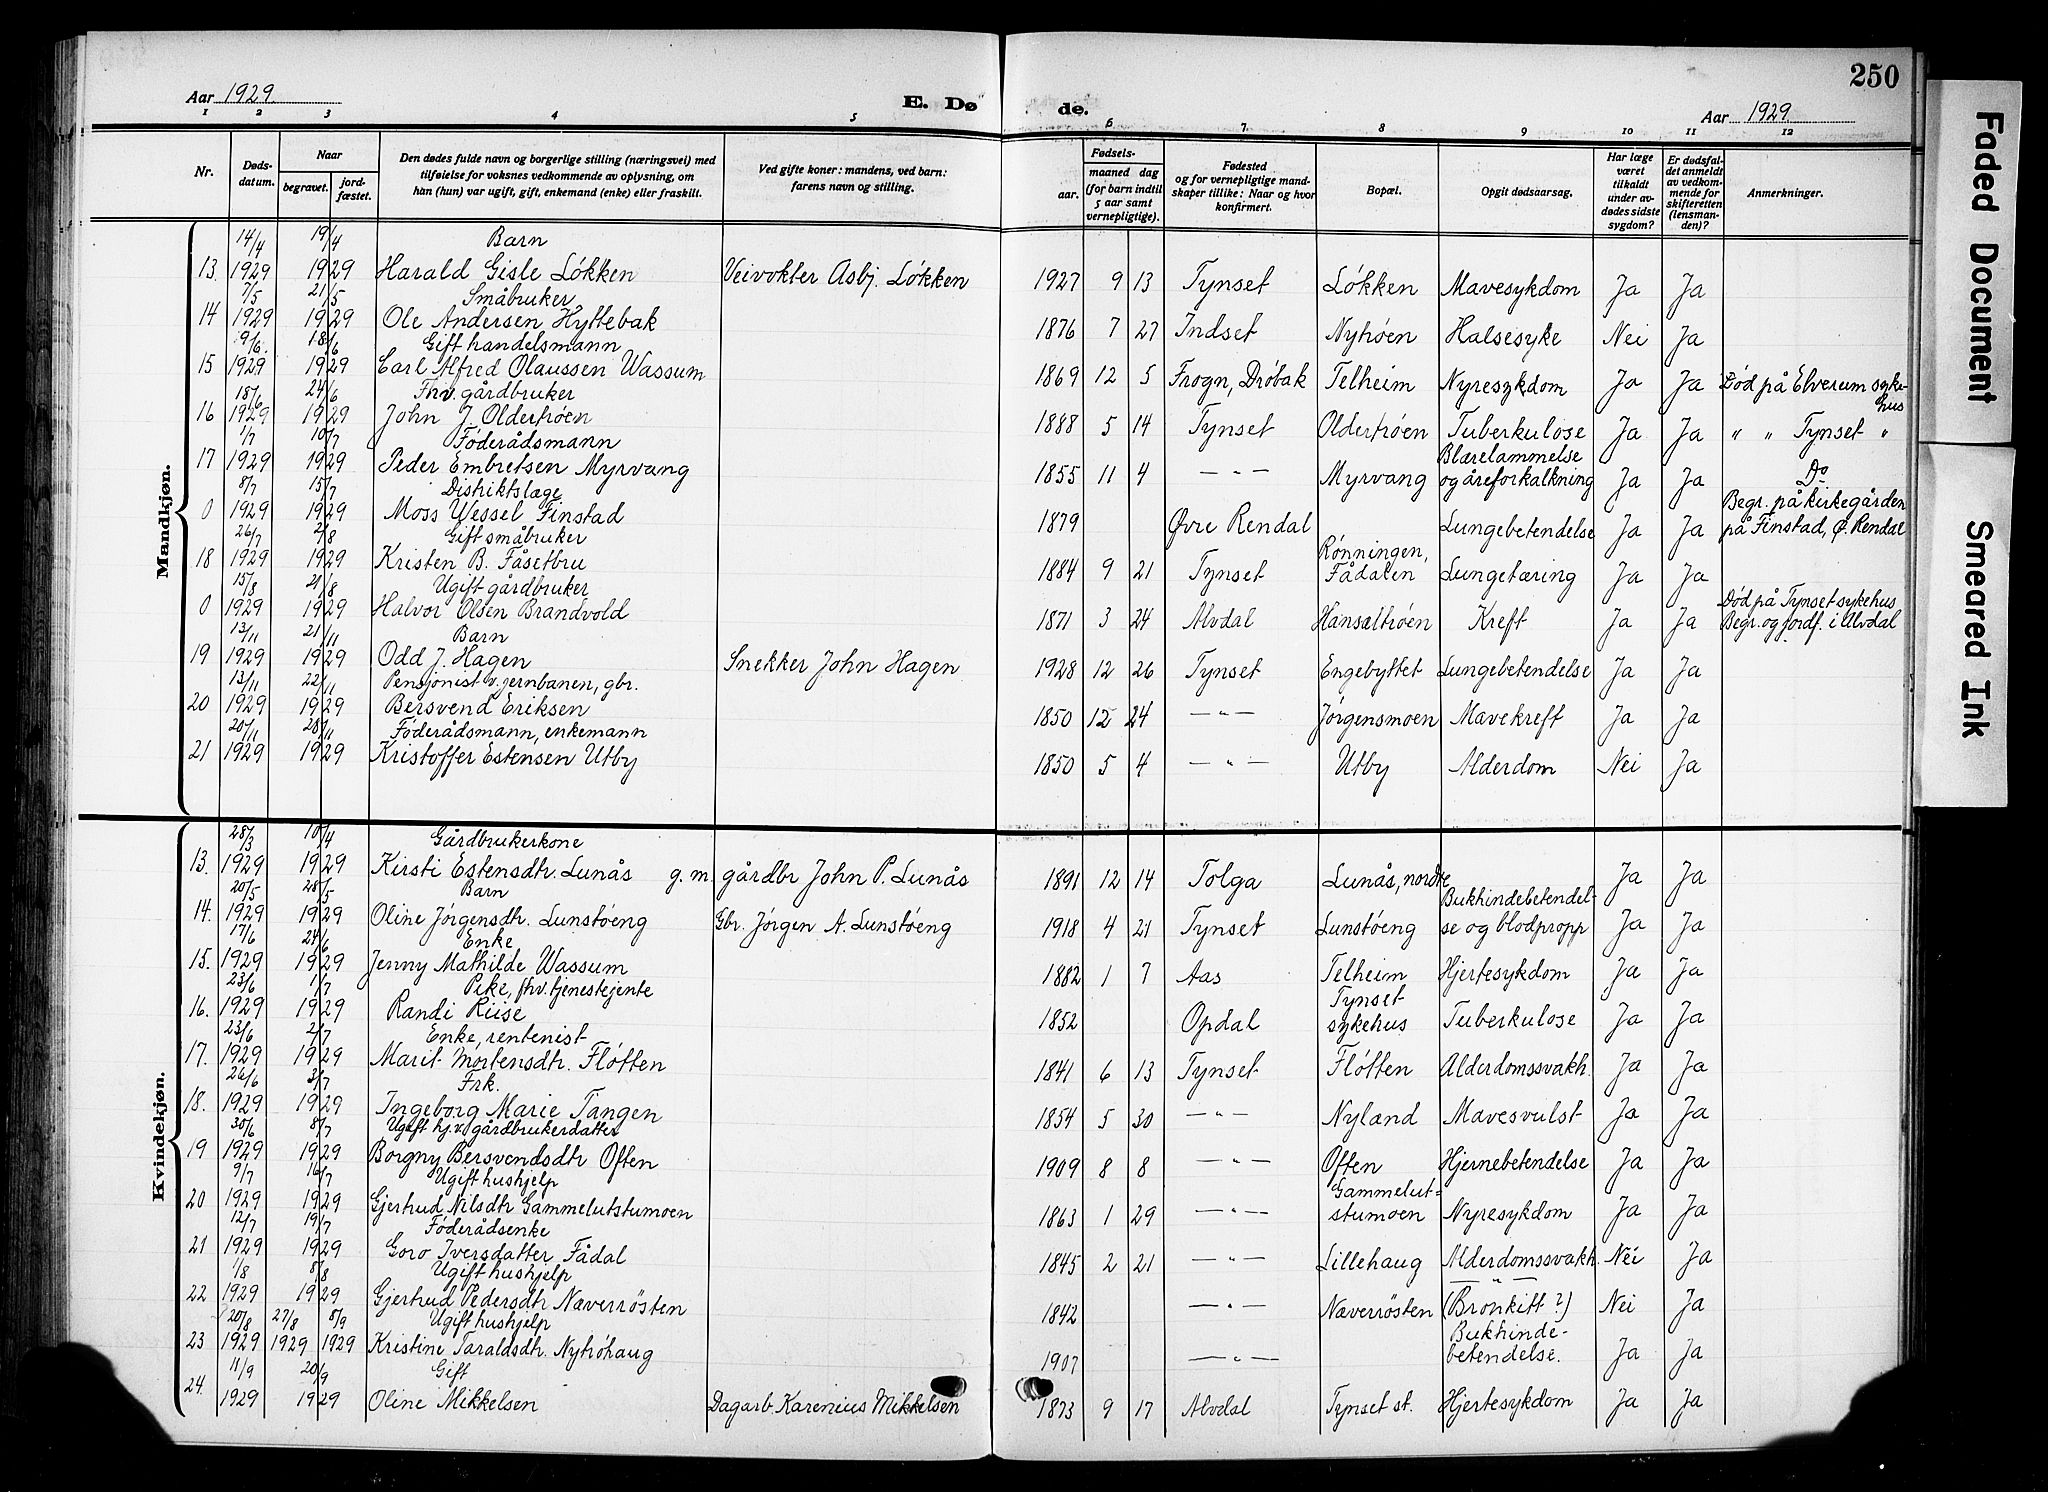 250
Aar 1929.
E. Dø de.
Aar 1929.
1 2 3 4 5 6 7 8 9 10 11 12
Nr.
Døds-
datum.
Naar
begravet.
jord-
fæstet.
Den dødes fulde navn og borgerlige stilling (næringsvei) med
tilføielse for voksnes vedkommende av oplysning, om
han (hun) var ugift, gift, enkemand (enke) eller fraskilt.
Ved gifte koner: mandens, ved barn:
farens navn og stilling.
Fødsels-
aar.
maaned dag
(for barn indtil
5 aar samt
vernepligtige).
Fødested
og for vernepligtige mand-
skaper tillike: Naar og hvor
konfirmert.
Bopæl.
Opgit dødsaarsag.
Har læge
været
tilkaldt
under av-
dødes sidste
sygdom?
Er dødsfal-
det anmeldt
av vedkom-
mende for
skifteretten
(lensman-
den)?
Anmerkninger.
Mandkjøn.
14/4 19/4 Barn
13. 1929 1929 Harald Gisle Løkken Veivokter Asbj. Løkken 1927 9 13 Tynset Løkken Mavesykdom Ja Ja
7/5 21/5 Småbruker
14 1929 1929 Ole Andersen Hyttebak 1876 7 27 Indset Nyhøen Halsesyke Nei Ja
9/6. 18/6 Gift handelsmann
15 1929 1929 Carl Alfred Olaussen Wassum 1869 12 5 Frogn, Drøbak Telheim Nyresykdom Ja Ja Død på Elverum syke-
hus
18/6 24/6 Fhv. gårdbruker
16 1929 1929 John J. Oldertrøen 1888 5 14 Tynset Oldertrøen Tuberkulose Ja Ja " " Tynset "
1/7 10/7 Føderådsmann
17 1929 1929 Peder Embretsen Myrvang 1855 11 4 — " — Myrvang Blærelammelse
og åreforkalkning Ja Ja Do
8/7 15/7 Distriktslæge
0 1929 1929 Moss Wessel Finstad 1879 Øvre Rendal Lungebetendelse Ja Ja Begr. på kirkegården
på Finstad, Ø. Rendal
26/7 2/8 Gift småbruker
18 1929 1929 Kristen B. Fåsetbru 1884 9 21 Tynset Rønningen,
Fådalen Lungetæring Ja Ja
15/8 21/8 Ugift gårdbruker
0 1929 1929 Halvor Olsen Brandvold 1871 3 24 Alvdal Hansæltrøen Kreft Ja Ja Død på Tynset sykehus
Begr. og jordf. i Alvdal
13/11 21/11 Barn
19 1929 1929 Odd J. Hagen Snekker John Hagen 1928 12 26 Tynset Engebyttet Lungebetendelse Ja Ja
13/11 22/11 Pensjonist v. jernbanen, gbr.
20 1929 1929 Bersvend Eriksen 1850 12 24 — " — Jørgensmoen Mavekreft Ja Ja
20/11 28/11 Føderådsmann, enkemann
21 1929 1929 Kristoffer Estensen Utby 1850 5 4 — " — Utby Alderdom Nei Ja
Kvindekjøn.
28/3 10/4 Gårdbrukerkone
13. 1929 1929 Kirsti Estensdtr. Lunås g. m. gårdbr John P. Lunås 1891 12 14 Tolga Lunås, nordre Ja Ja
20/5 28/5 Barn
14. 1929 1929 Oline Jørgensdtr. Lunstøeng Gbr. Jørgen A. Lunstøeng 1918 4 21 Tynset Lunstøeng Bukhindebetendel-
se og blodpropp Ja Ja
17/6 24/6 Enke
15. 1929 1929 Jenny Mathilde Wassum 1882 1 7 Aas Telheim Hjertesykdom Ja Ja
23/6 1/7 Pike, fhv. tjenestejente
16. 1929 1929 Randi Riise 1852 Opdal Tynset
sykehus Tuberkulose Ja Ja
23/6 2/7 Enke, rentenist
17. 1929 1929 Marit Mortensdtr. Fløtten 1841 6 13 Tynset Fløtten Alderdomssvakh. Ja Ja
26/6 3/7 Frk.
18. 1929 1929 Ingeborg Marie Tangen 1854 5 30 — " — Nyland Mavesvulst Ja Ja
30/6 8/7 Ugift hj.v. gårdbrukerdatter
19 1929 1929 Borgny Bersvendsdtr Often 1909 8 8 — " — Often Hjernebetendelse Ja Ja
9/7 16/7 Ugift hushjelp
20 1929 1929 Gjertrud Nilsdtr Gammelutstumoen 1863 1 29 — " — Gammelut-
stumoen Nyresykdom Ja Ja
12/7 19/7 Føderådsenke
21 1929 1929 Goro Iversdatter Fådal 1845 2 21 — " — Lillehaug Alderdomssvakh. Nei Ja
1/8 8/8 Ugift hushjelp
22 1929 1929 Gjertrud Pedersdtr Næverrøsten 1842 — " — Næverrøsten — " —
(Bronkitt?) Nei Ja
20/8 27/8 8/9 Ugift hushjelp
23 1929 1929 1929 Kristine Taraldsdtr. Nytrøhaug 1907 — " — Bukhinde-
betendelse. Ja Ja
11/9 20/9 Gift
24. 1929 1929 Oline Mikkelsen Dagarb. Karenius Mikkelsen 1873 9 17 Alvdal Tynset st. Hjertesykdom Ja Ja
Faded Document
Smeared Ink